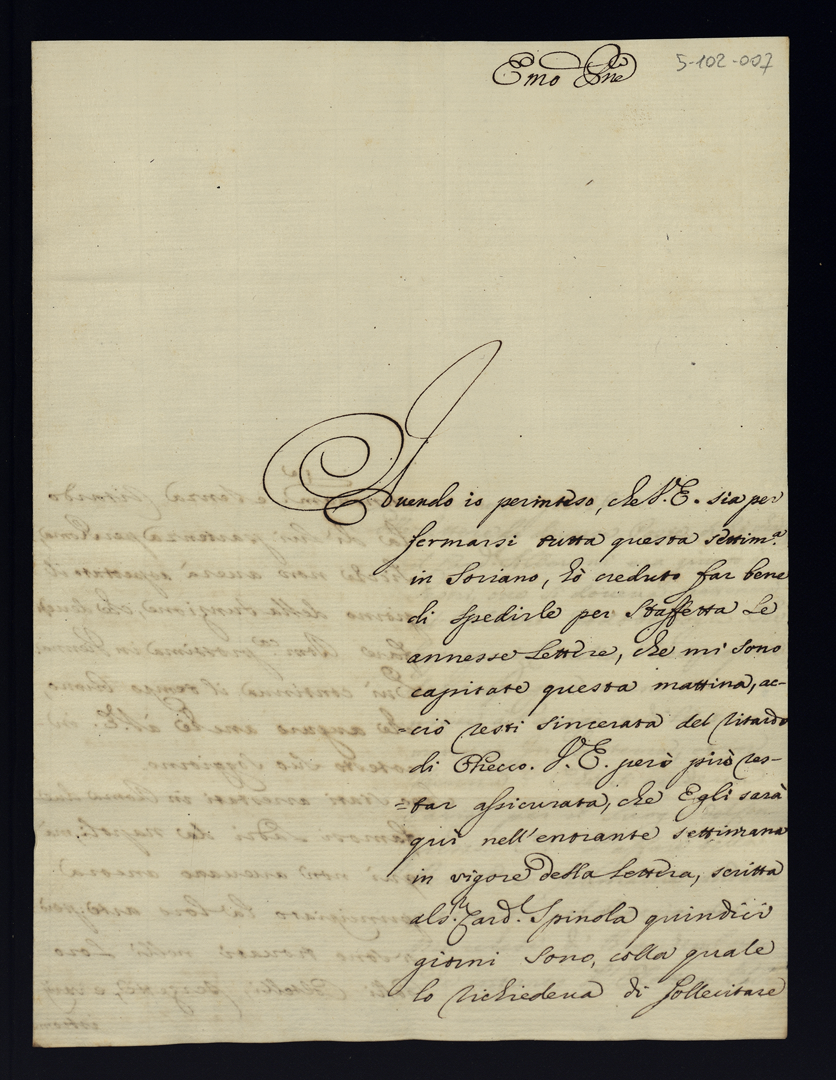 Emo Pne
5-102-007
Avendo io perinteso, che V. E. sia per
fermarsi tutta questa settim.a
in Soriano, hò creduto far bene
di spedirle per Staffetta Le
annesse Lettere, che mi sono
capitate questa mattina, ac-
=ciò resti sincerata del ritardo
di Checco. V. E. però può res-
=tar assicurata, che Egli sarà
qui nell'entrante settimana
in vigore della Lettera, scritta
al S.r Card.l Spinola quindici
giorni sono, colla quale
lo richiedeva di sollecitare